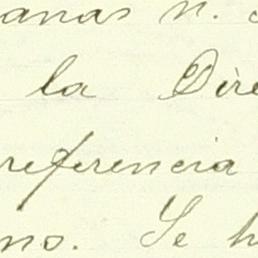 anas n.
la Dire
referencia
no. Se h